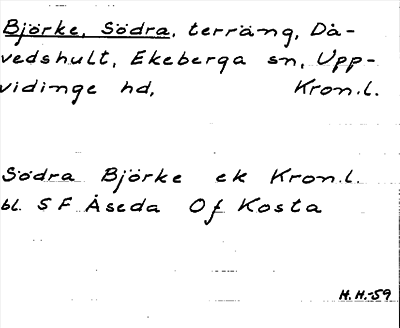 Björke, Södra, terräng, Då-
vedshult, Ekeberga sn, Upp-
vidinge hd, Kron.l.
Södra Björke ek Kron.l.
bl. 5 F Åseda Of Kosta
H.H.-59